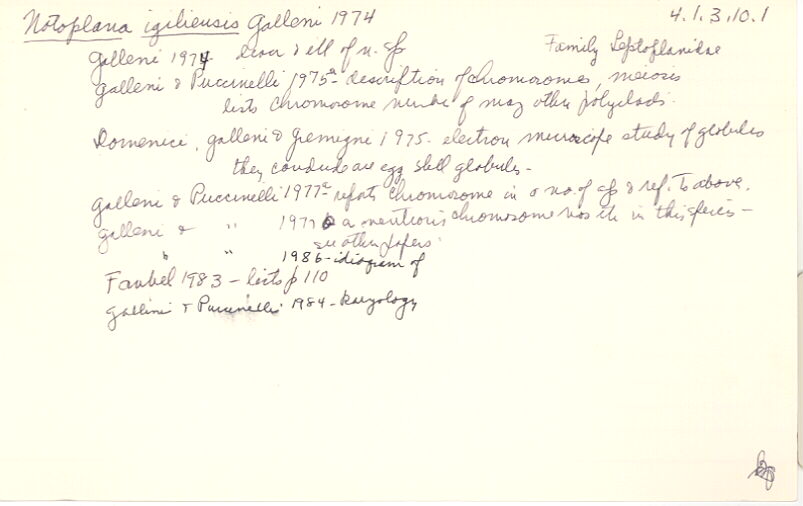 Notoplana igiliensis Galleni 1974 4.1.3.10.1
Galleni 1974 descr & ill of n. sp Family Leptoplanidae
Galleni & Puccinelli 1975a - description of chromosomes, meiosis
lists chromosome number of many other polyclads.
Domenici, Galleni & Gremigni 1975 - electron microscope study of globules
they conclude are egg shell globules -
Galleni & Puccinelli 1977a reports chromosome in a no. of sp & ref. to above.
Galleni & " 1977b a mentions chromosome nos etc in this species -
see other papers
" " 1986 - idiogram of
Faubel 1983 - lists p 110
Galleni & Puccinelli 1984 - Karyology